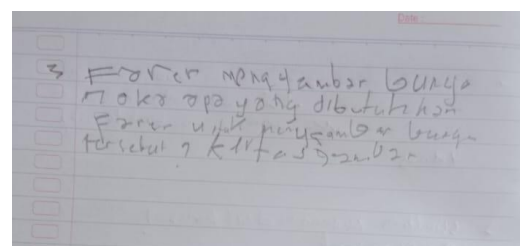 Date
3 Farel menggambar bunga
maka apa yang dibutuhkan
Farel untuk menggambar bunga
tersebut ? kertas gambar